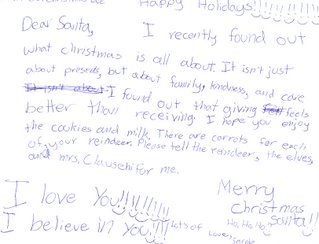 Happy Holidays!!!!!!!
Dear Santa, I recently found out
what christmas is all about. It isn't just
about presents, but about family, kindness, and care
I found out that giving feels
better than receiving. I hope you enjoy
the cookies and milk. There are carrots for each
of your reindeer. Please tell the reindeer, the elves,
and mrs. Claus hi for me.
I love You!!!!!!!
I believe in you!!!!
Lots of Love,
Merry
Christmas
Santa!!
Ho, Ho, Ho